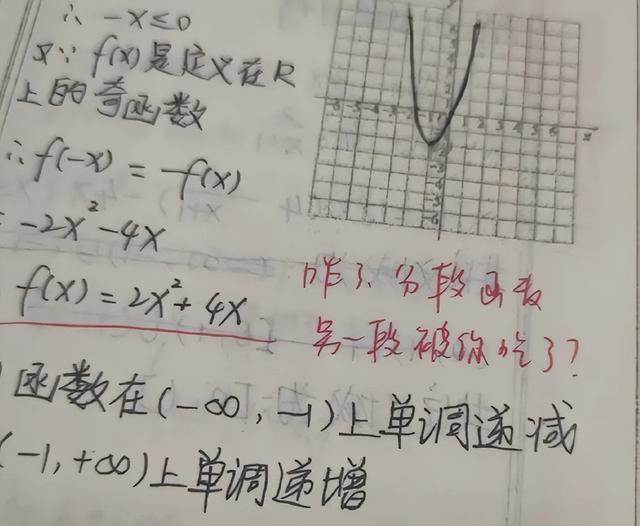 ∴ -x≤0
又∵ f(x)是定义在R
上的奇函数
∴f(-x) = -f(x)
-2x²-4x
f(x) = 2x²+4x
咋了、分段函数
另一段被你吃了?
函数在(-∞,-1)上单调递减
(-1,+∞)上单调递增